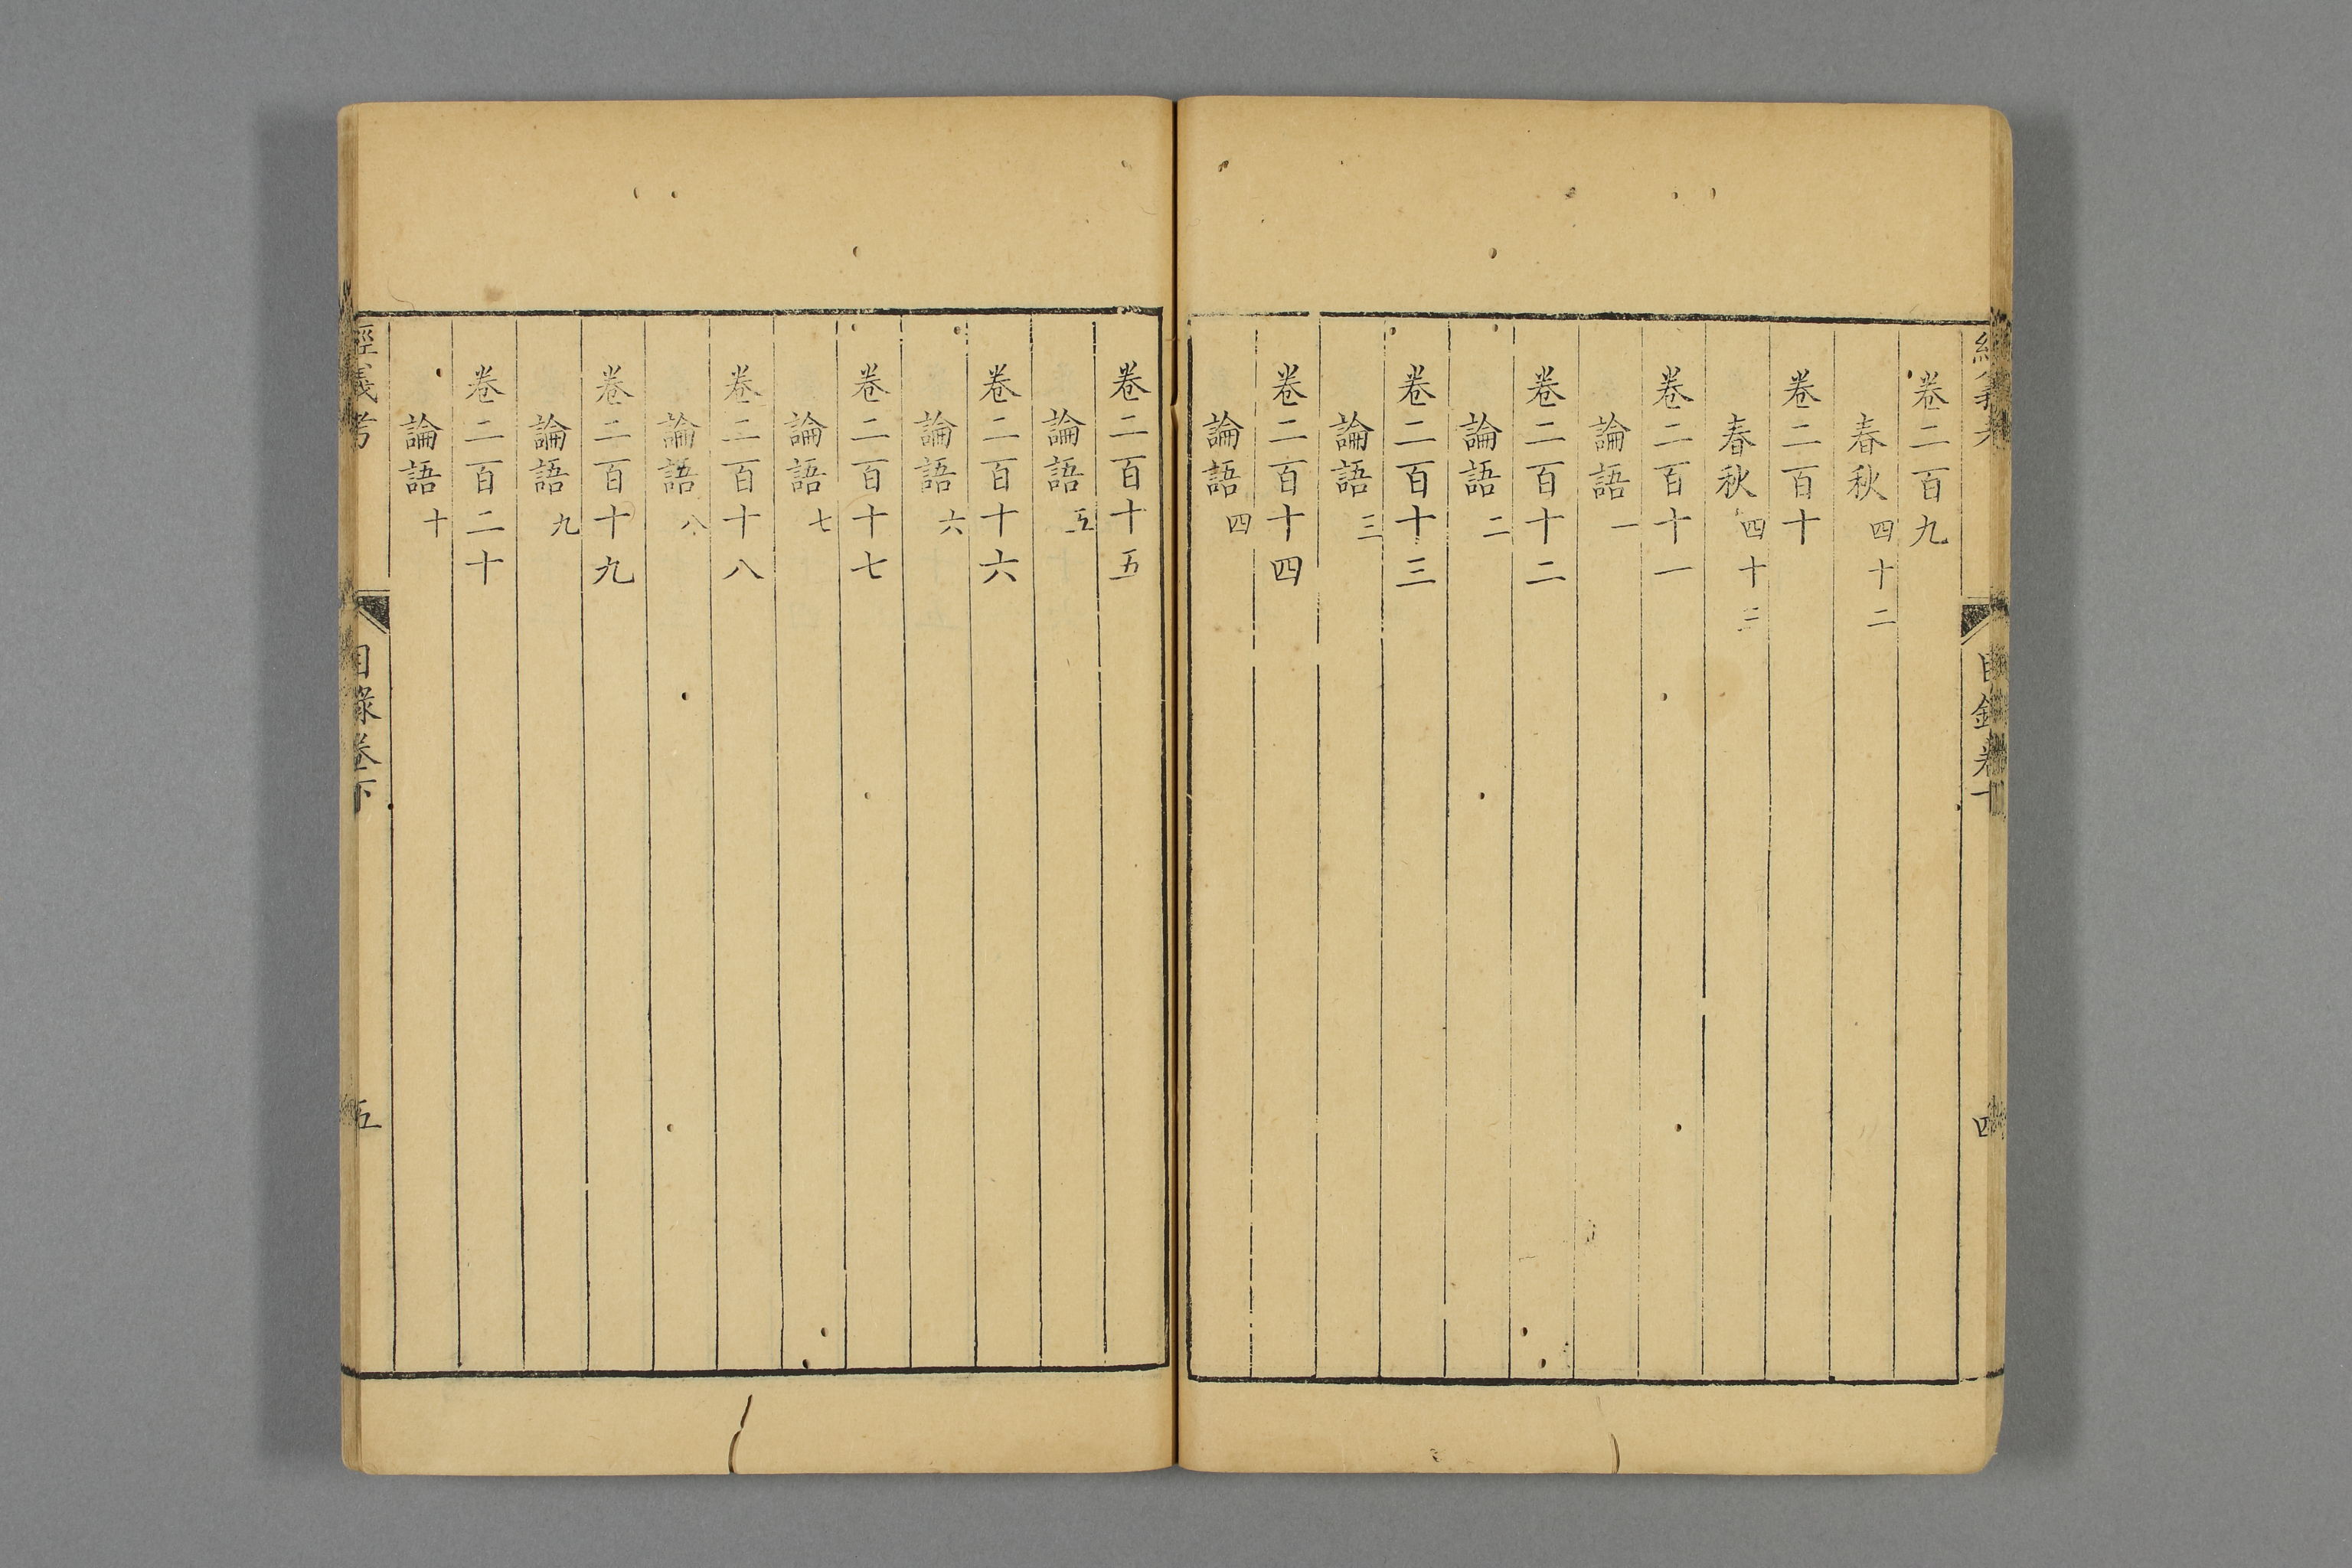 卷二百九
春秋四十二
卷二百十
春秋四十三
卷二百十一
論語一
卷二百十二
論語二
卷二百十三
論語三
卷二百十四
論語四
卷二百十五
論語五
卷二百十六
論語六
卷二百十七
論語七
卷二百十八
論語八
卷二百十九
論語九
卷二百二十
論語十
經義考
目錄卷下
五